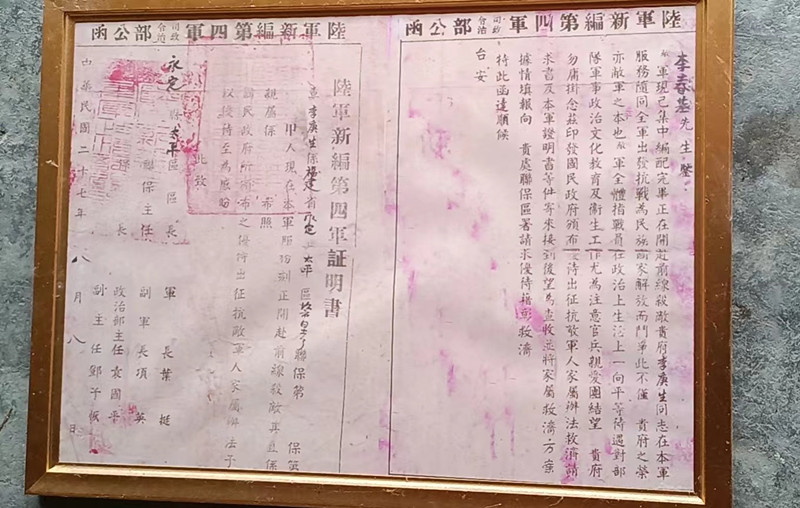 陸軍新編第四軍司令政治部公函
李春基先生鑒
敝軍現已集中編配完畢正在開赴前線殺敵貴府李庚生同志在本軍
服務隨同全軍出發抗戰為民族國家解放而鬥爭此不僅 貴府之榮
亦敝軍之本也敝軍全體指戰員在政治上生活上一向平等待遇對部
隊軍事政治文化教育及衛生工作尤為注意官兵親愛團結望 貴府
勿庸掛念茲印發國民政府頒布優待出征抗敵軍人家屬辦法救濟請
求書及本軍證明書等件寄來接到後望為查收並將家屬救濟方案
據情填報向 貴處聯保區署請求優待藉彰救濟
特此函達順候
台安
陸軍新編第四軍司令政治部公函
陸軍新編第四軍証明書
李庚生係福建省永定 太平區 聯保第 保第
甲人現在本軍服務刻正開赴前線殺敵 係
親屬係 希照
國民政府所頒布之優待出征抗敵軍人家屬辦法予
以優待至為感盼
此致
永定縣太平區區長
聯保主任
保 長
軍 長葉 挺
副軍長項 英
政治部主任袁國平
副主任鄧子恢
中華民國二十七年 八月 八 日